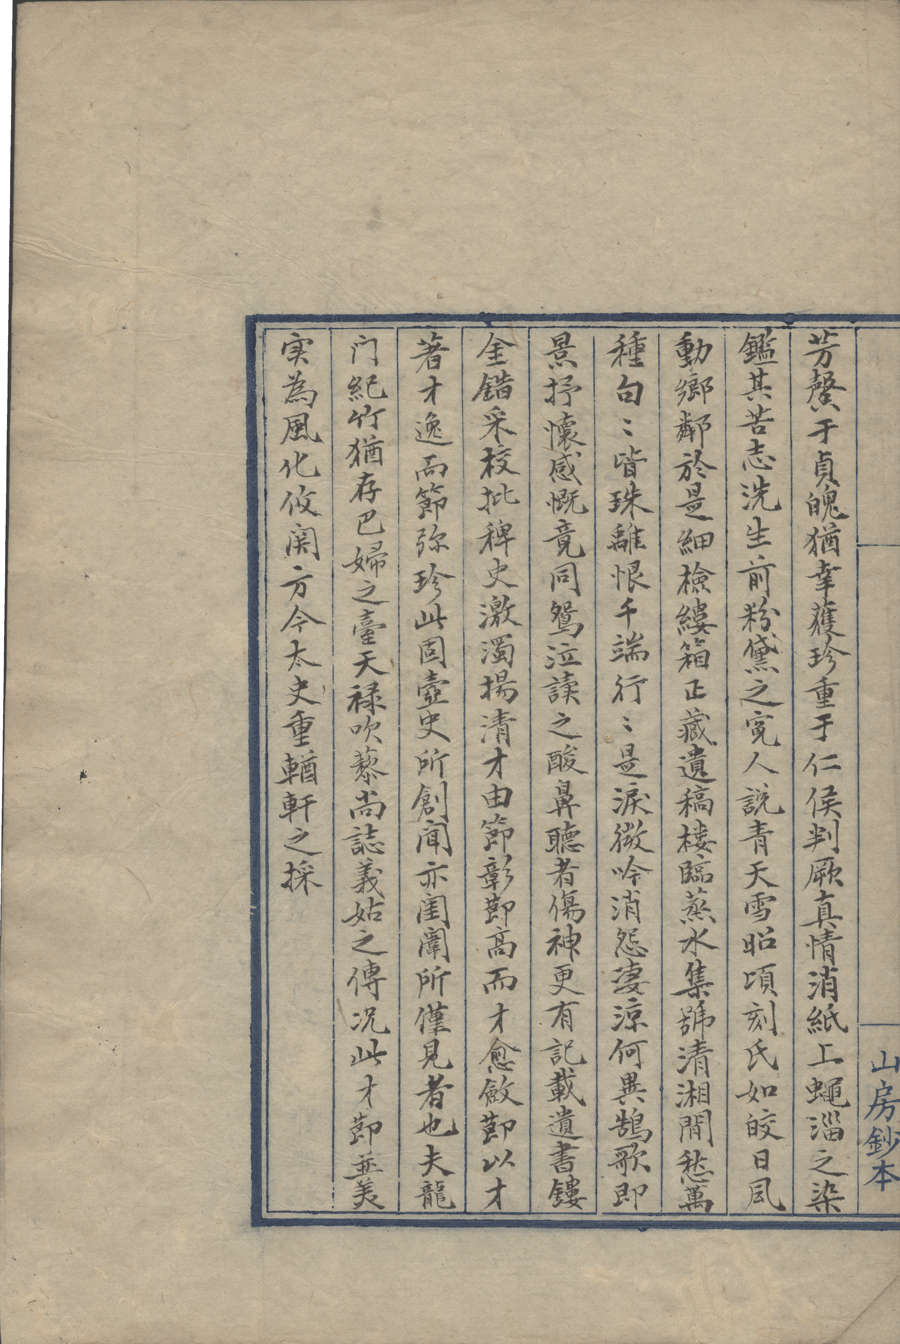 山房鈔本
芳馨于貞魄猶幸獲珍重于仁侯判厥真情消紙上蠅淄之染
鑑其苦志洗生前粉黛之寃人説青天雪昭頃刻氏如皎日風
動鄉鄰於是細檢縷箱正藏遺稿楼臨蒸水集號清湘閒愁萬
種句〻皆珠離恨千端行〻是淚微吟消怨淒涼何異鵠歌即
景抒懷感慨竟同鴛泣读之酸鼻聽者傷神更有記載遺書鏤
金錯采校批稗史激濁揚清才由節彰節高而才愈斂節以才
著才逸而節弥珍此固壺史所創聞亦閨闈所僅見者也夫龍
门紀竹猶存巴婦之臺天禄吹藜尚誌義姑之傳况此才節並美
实為風化攸関方今太史重輶軒之採